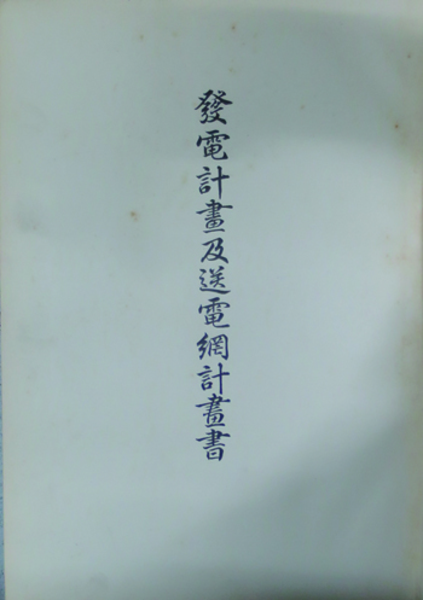 發電計畫及送電網計畫書